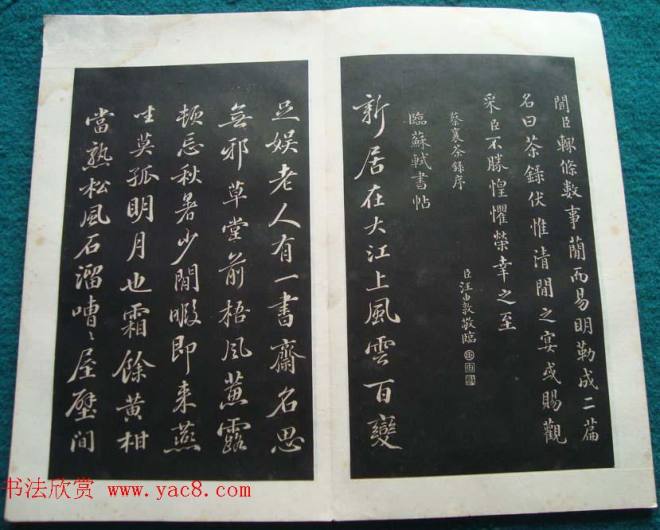 閒臣輒條數事簡而易明勒成二篇
名曰茶錄伏惟清閒之宴或賜觀
采臣不勝惶懼榮幸之至
蔡襄茶錄序
臣汪由敦敬臨
臨蘇軾書帖
新居在大江上風雲百變
足娛老人有一書齋名思
無邪草堂前梧風蕙露
頓忘秋暑少閒暇即來燕
坐莫孤明月也霜餘黃柑
當熟松風石溜嘈〻屋壁間
书法欣赏 www.yac8.com